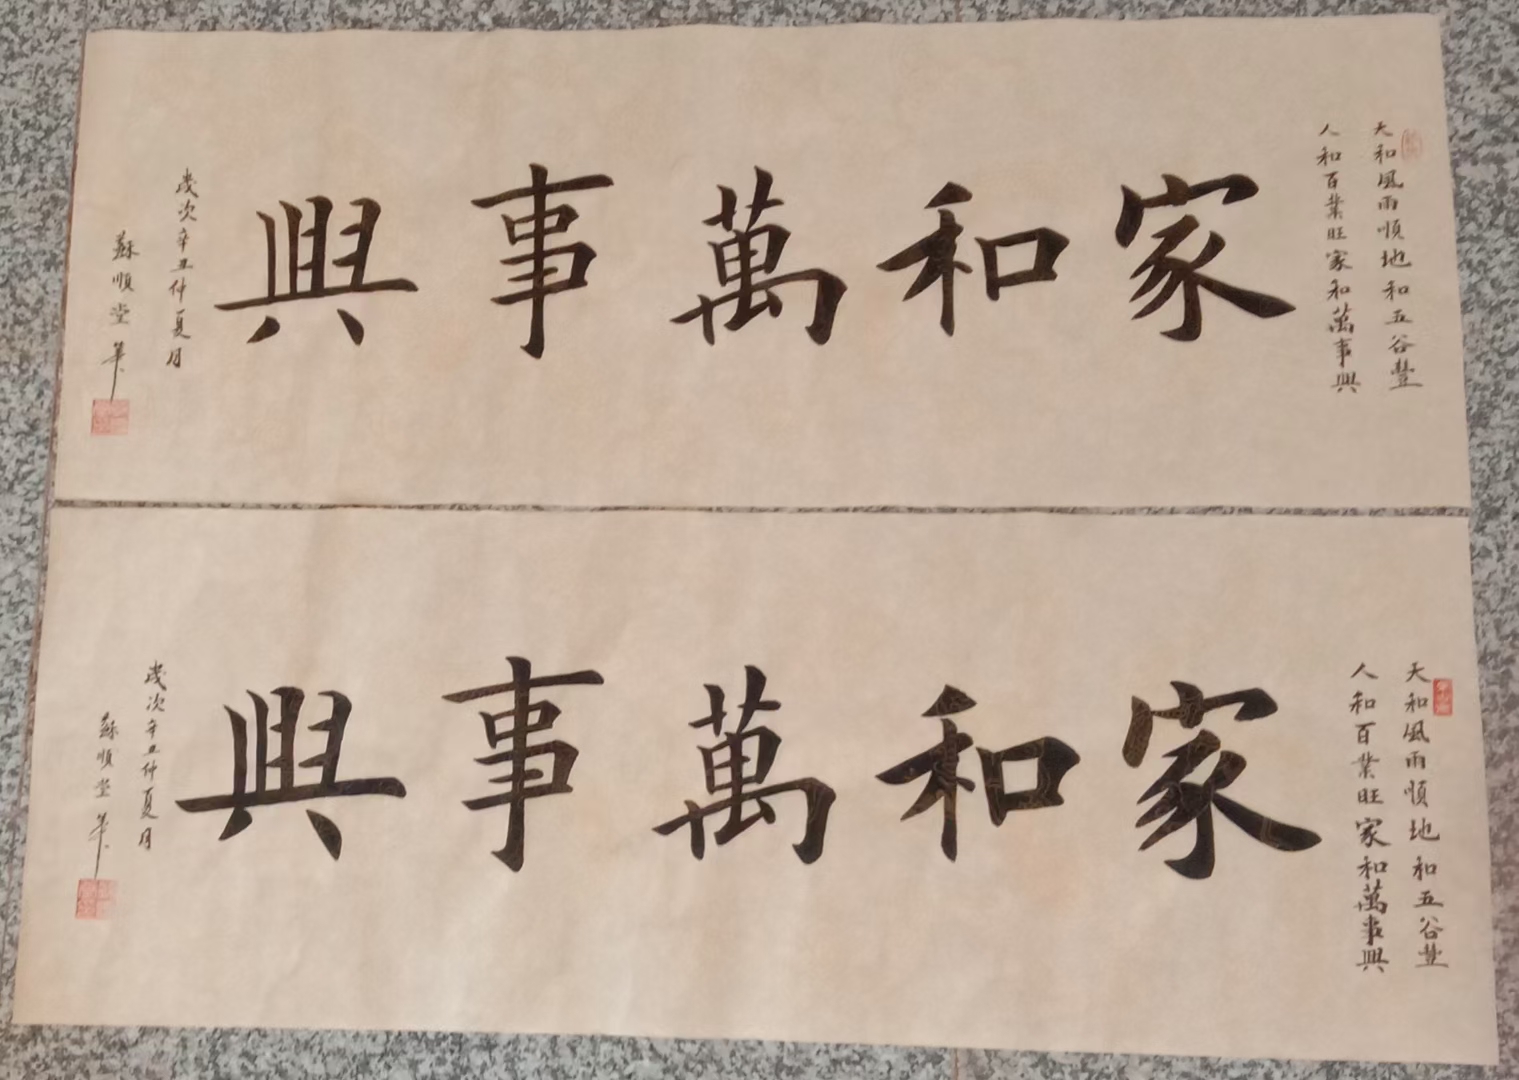 天和風雨順地和五谷豐
人和百業旺家和萬事興
家和萬事興
歲次辛丑仲夏月
蘇順堂筆
天和風雨順地和五谷豐
人和百業旺家和萬事興
家和萬事興
歲次辛丑仲夏月
蘇順堂筆